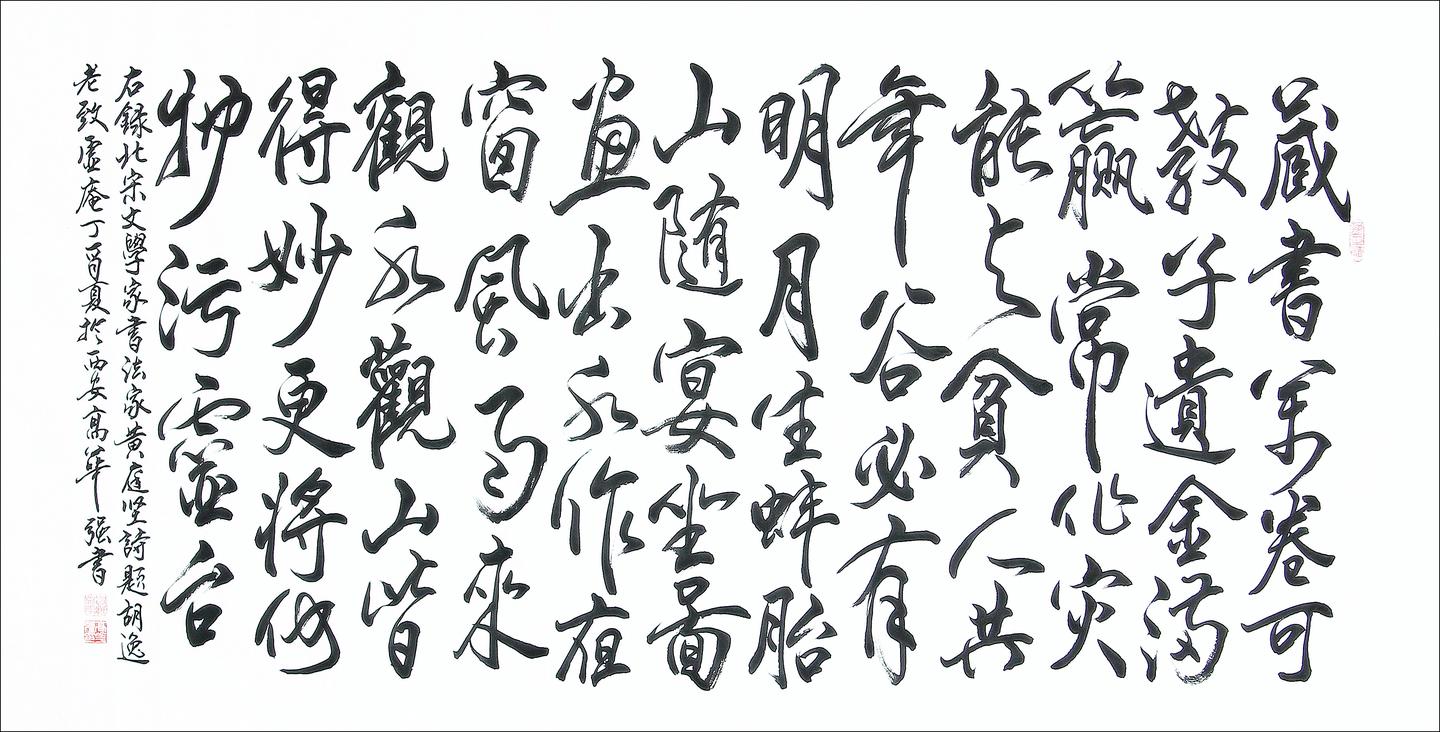 藏書万卷可
教子遺金滿
籯常作灾
能与貧人共
年谷必有
明月生蚌胎
山随宴坐啚
畫出水作夜
窗風雨來
觀水觀山皆
得妙更將何
物污靈台
右録北宋文學家書法家黄庭坚詩題胡逸
老致虛庵丁酉夏於西安高華强書